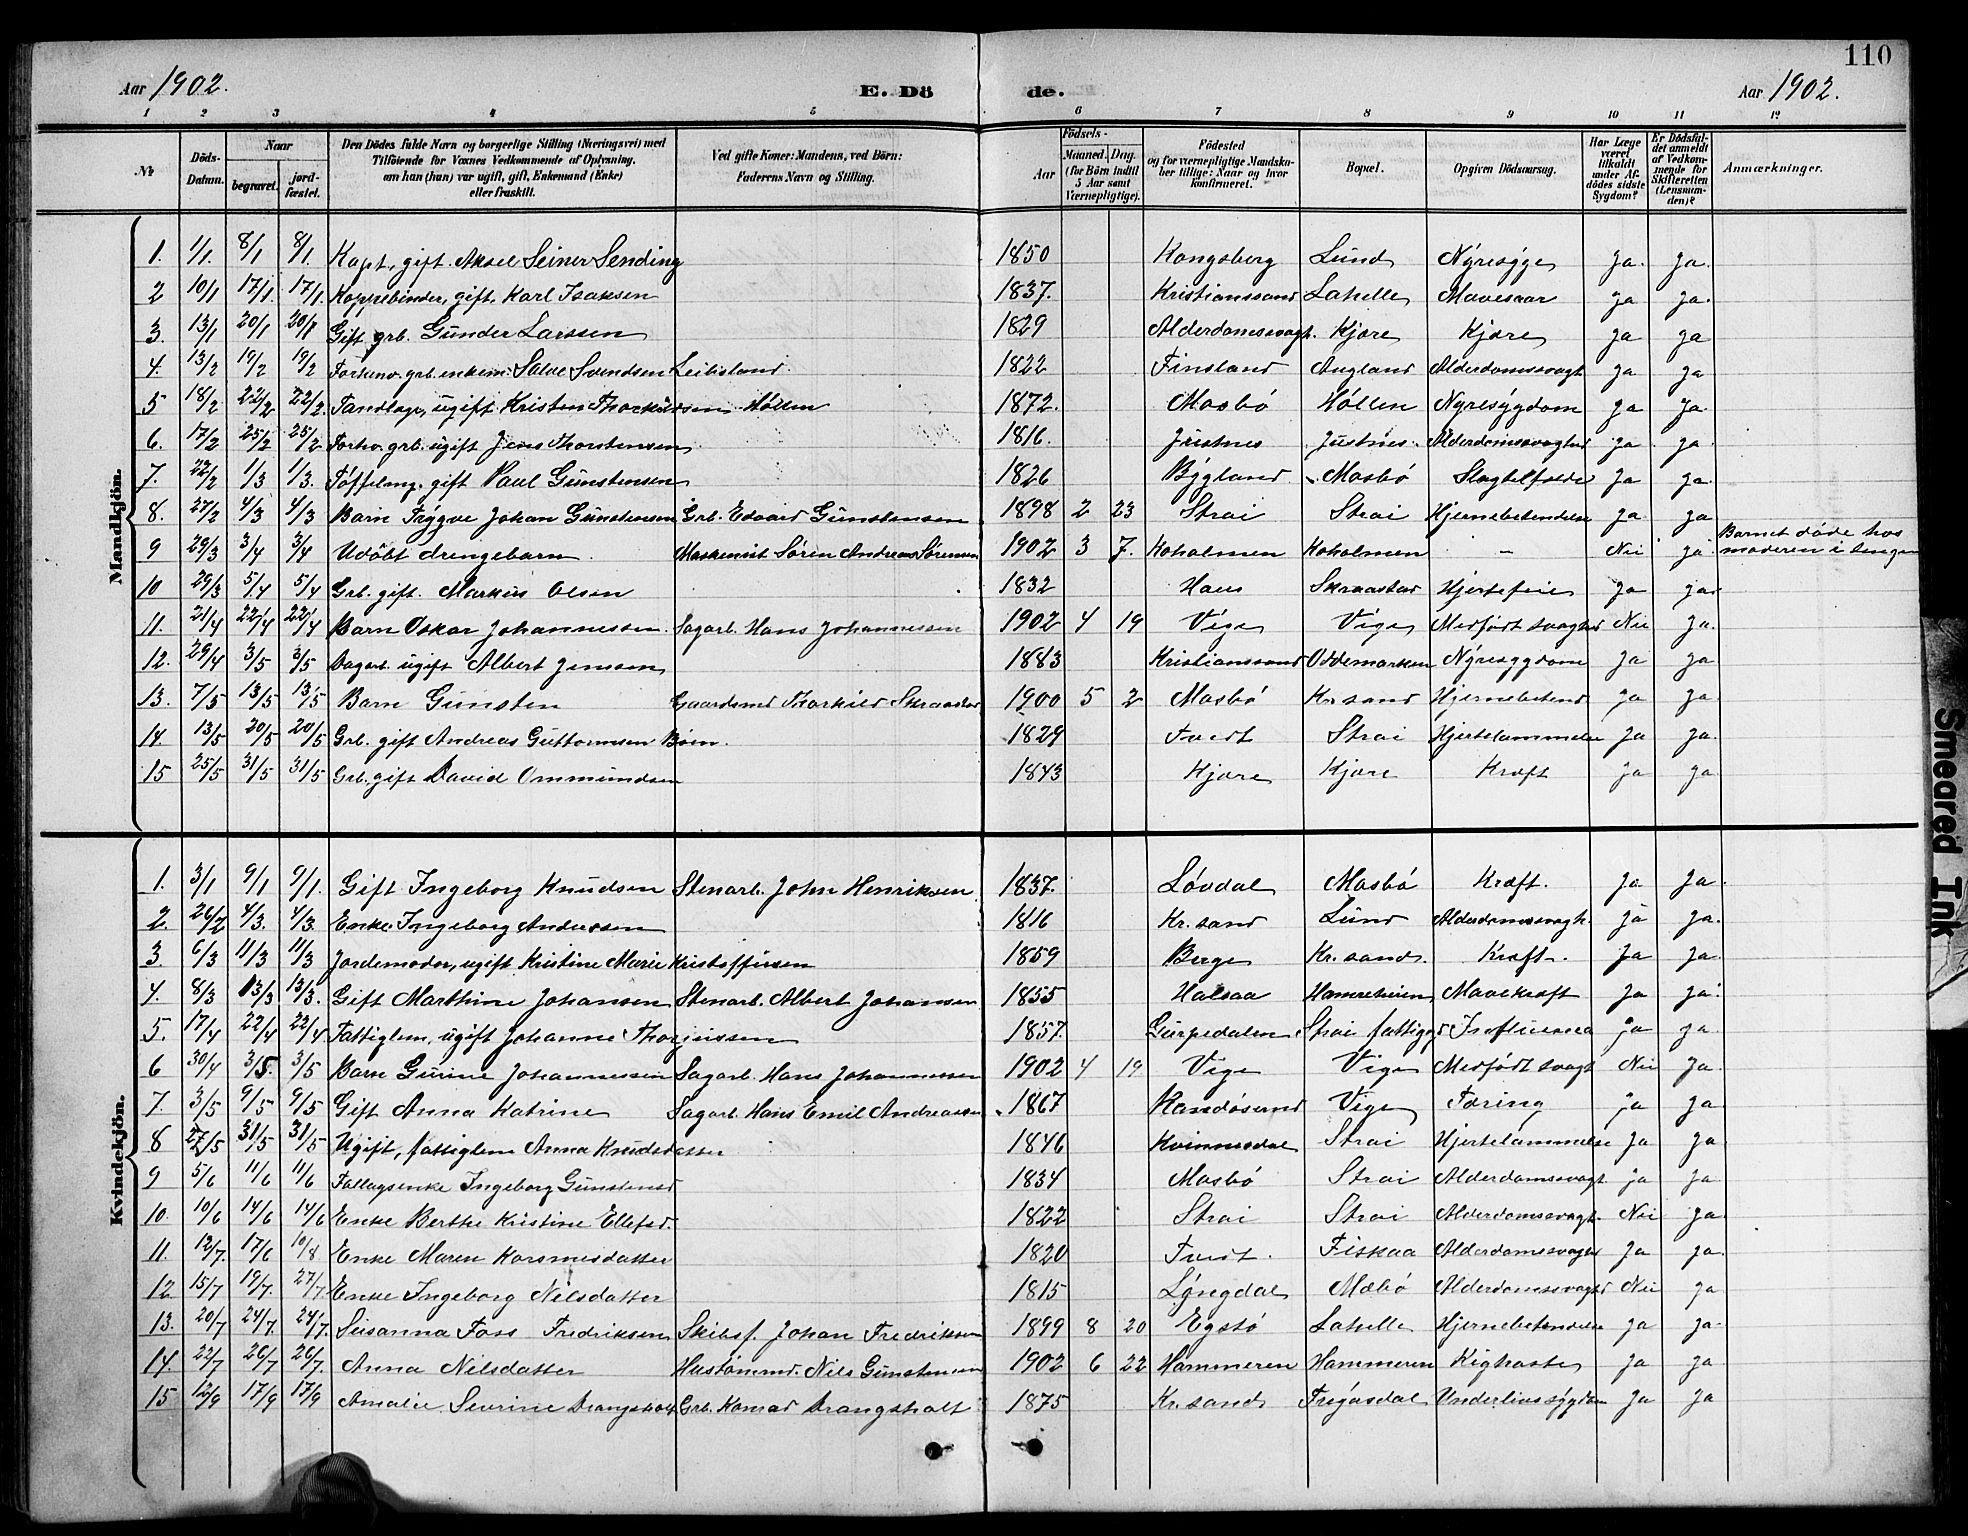 110
Aar 1902. E. Dö de. Aar 1902.
1 2 3 4 5 6 7 8 9 10 11 12
No Döds-Datum. Naar begravet. jordfæstet. Den Dödes fulde Navn og borgerlige Stilling (Næringsvei) med Tilføiende for Voxnes Vedkommende af Oplysning, om han (hun) var ugift, gift, Enkemand (Enke) eller fraskilt. Ved gifte Koner: Mandens, ved Börn: Faderens Navn og Stilling. Födsels- Aar Maaned. Dag. (for Börn indtil 5 Aar samt Værnepligtige). Födested og for værnepligtige Mandskaber tillige: Naar og hvor konfirmeret. Bopæl. Opgiven Dödsaarsag. Har Læge været tilkaldt under Afdödes sidste Sygdom? Er Dödsfaldet anmeldt af Vedkommende for Skifteretten (Lensmanden)? Anmærkninger.
Mandkjön.
1. 1/1. 8/1 8/1. Kapt., gift. Aksel Seiner Sending 1850 Kongsberg Lund Nyresyge ja. ja.
2 10/1 17/1. 17/1. Koppebinder, gift, Karl Isaksen 1837. Kristianssand Lahelle Mavesaar ja ja.
3. 13/1 20/1 20/1 Gift grb. Gunder Larssen 1829 Alderdomssvagh. Kjære Kjære ja ja
4. 13/2 19/2 19/2 Forhenv. grb. enkem. Salve Svendsen Leibisland. 1822 Finsland Augland Alderdomssvagh ja ja
5 18/2 22/2 22/2. Tandlæge, ugift Kristen Thorkildsen Höllen 1872. Mosbö Höllen Nyresygdom ja ja.
6. 17/2 25/2 25/2 Forhv. grb. ugift Jens Thorstensen 1816. Justnes Justnes. Alderdomssvaghed ja ja.
7. 22/2 1/3 1/3. Töffelmg. gift Paul Gunstensen 1826 Bygland Mosbö Slagtilfælde ja ja.
8. 27/2 4/3 4/3 Barn Trygve Johan Gunstensen Grb. Edvard Gunstensen 1898 2 23 Strai Strai Hjernebetendelse ja. ja
9 29/3 3/4 3/4 Udöbt drengebarn. Maskenist Sören Andreas Sörensen 1902 3 7. Koholmen Koholmen - Nei ja Barnet döde hos moderen i sengen
10 29/3 5/4 5/4 Grb. gift. Markus Olsen 1832 Haus Skraastad Hjertefeil ja ja.
11. 21/4 22/4 22/4 Barn Oskar Johannessen. Sagarb. Hans Johannessen 1902 4 19 Vige Vige Medfödt svaghed Nei ja.
12. 29/4 3/5 3/5 Dagarb. ugift Albert Jensen 1883 Kristianssand Oddemarken Nyresygdom ja ja
13. 7/5 13/5 13/5 Barn Gunsten Gaardmd Thorkild Skraastad 1900 5 2 Mosbö Kr.sand Hjernebetend ja ja.
14. 13/5 20/5 20/5 Grb. gift Andreas Guttormsen Böen. 1829 Tveit Strai Hjertelammelse ja ja.
15 25/5 31/5 31/5 Grb. gift David Ommundsen 1843 Kjære Kjære Kræft ja ja
Kvindekjön.
1. 3/1 9/1 9/1. Gift Ingeborg Knudsen Stenarb. John Henriksen 1837. Lövdal Mosbö Kræft. ja ja.
2. 26/2 4/3. 4/3. Enke Ingeborg Anderssen 1816 Kr.sand Lund Alderdomssvagh. ja ja.
3. 6/3 11/3 11/3 Jordemoder, ugift Kristine Marie Kristoffersen 1859 Berge Kr.sand. Kræft. ja ja.
4. 8/3 13/3 13/3. Gift Marthine Johansen Stenarb. Albert Johansen 1855 Halsaa Hamreheien Mavekræft ja ja.
5. 17/4 22/4 22/4 Fattiglem, ugift Johanne Thorjussen 1857. Gurpedalen Strai fattiggd Influensa ja ja
6 30/4 3/5. 3/5 Barn Gurine Johannessen Sagarb. Hans Johannessen 1902 4 19 Vige Vige Medfödt svagh Nei ja.
7. 3/5 9/5 9/5 Gift Anna Katrine Sagarb. Hans Emil Andreassen 1867 Randösund Vige Tæring ja ja.
8 27/5 31/5 31/5 Ugift, fattiglem Anna Knudsdatter 1846 Kvinnesdal Strai Hjertelammelse ja ja.
9 5/6 11/6 11/6 Föllagsenke Ingeborg Gunstensd 1834 Mosbö Strai Alderdomssvagh ja ja.
10. 10/6 14/6 14/6 Enke Berthe Kristine Ellefsd. 1822 Strai Strai Alderdomssvagh. Nei ja.
11. 12/7. 17/6 10/8 Enke Maren Korsmosdatter 1820 Tveit. Fiskaa Alderdomssvaghed ja ja.
12. 15/7 19/7. 27/7. Enke Ingeborg Nilsdatter 1815 Lyngdal Mosbö Alderdomssvaghed Nei ja
13. 20/7 24/7. 24/7. Susanna Foss Fredriksen Skibsf. Johan Fredriksen 1899 8 20 Egstö Lahelle Hjernebetendelse ja ja.
14. 22/7 26/7 26/7. Anna Nilsdatter Hustömmd. Nils Gunstensen 1902 6 22 Hammeren Hammeren Kighoste ja ja
15 12/9 17/9 17/9 Amalie Severine Drangsholt Grb. Konrad Drangsholt 1875 Kr.sand Frøysdal Underlivssygdom ja ja
Smeared Ink